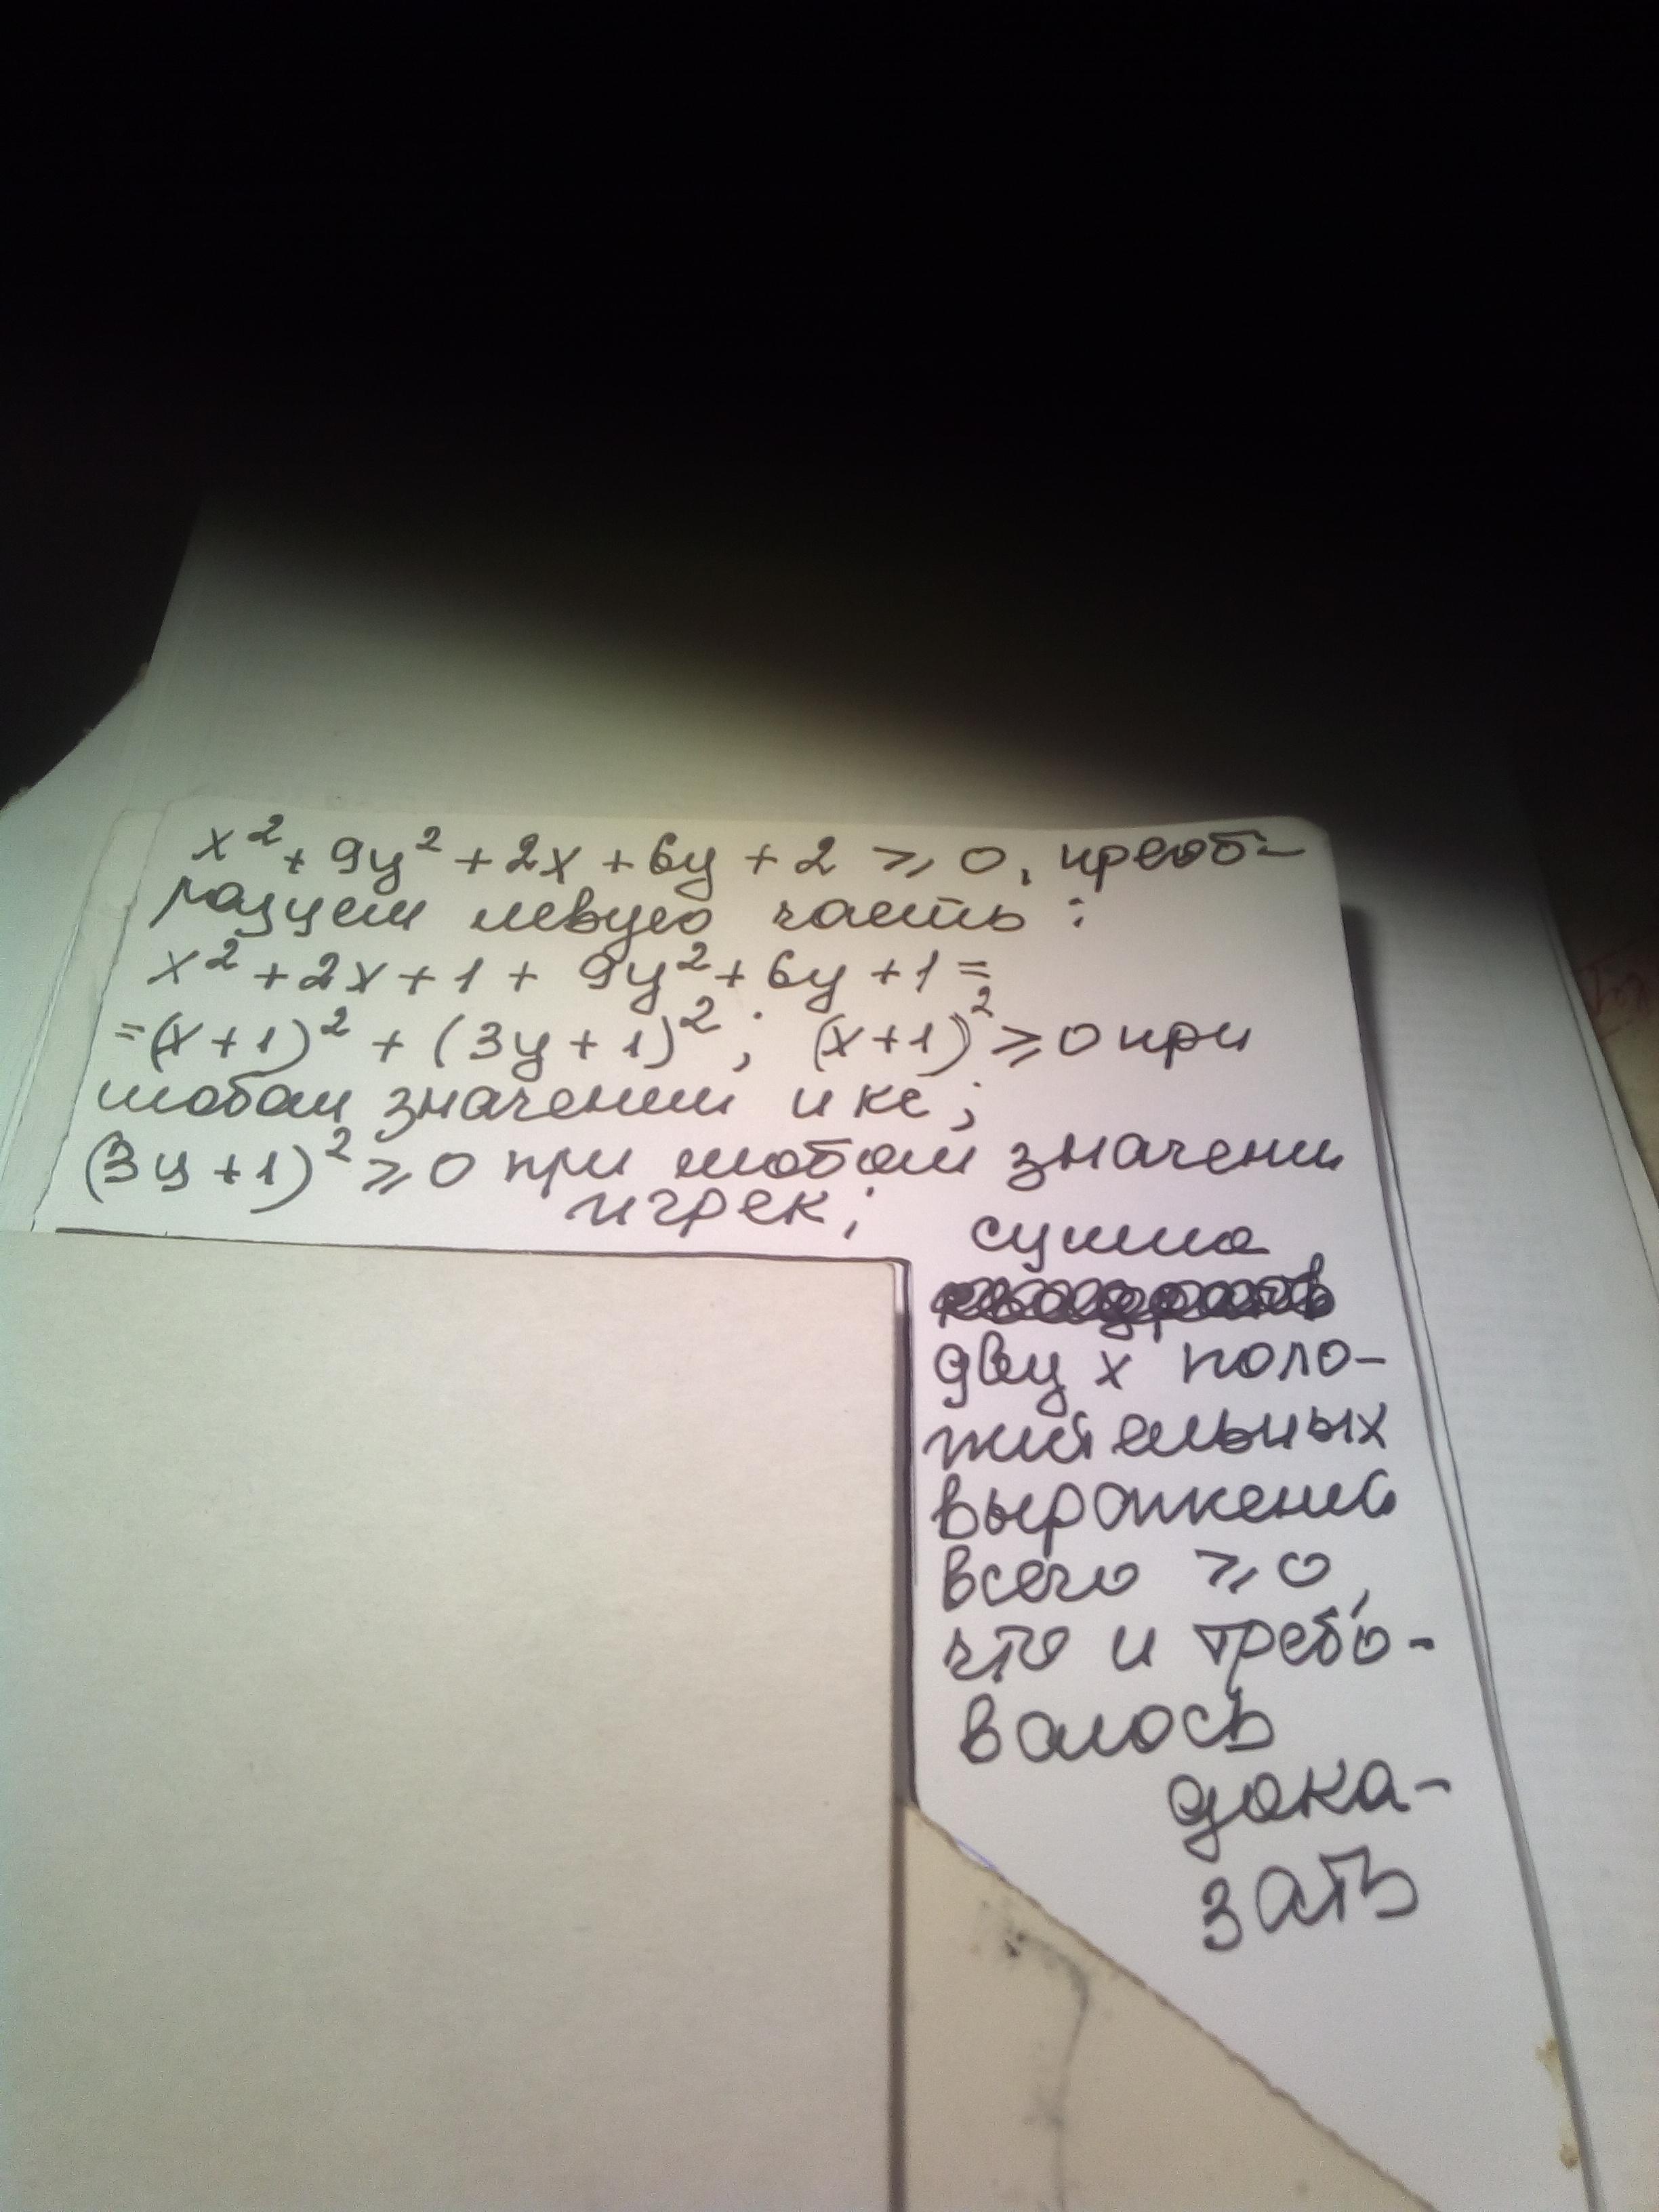 x² + 9y² + 2x + 6y + 2 ⩾ 0, преоб-
разуем левую часть:
x² + 2x + 1 + 9y² + 6y + 1 =
= (x + 1)² + (3y + 1)²; (x + 1)² ⩾ 0 при
любом значении икс;
(3y + 1)² ⩾ 0 при любом значени
игрек;
сумма
двух поло-
жительных
выражений
всего ⩾ 0,
что и требо-
валось
дока-
зать